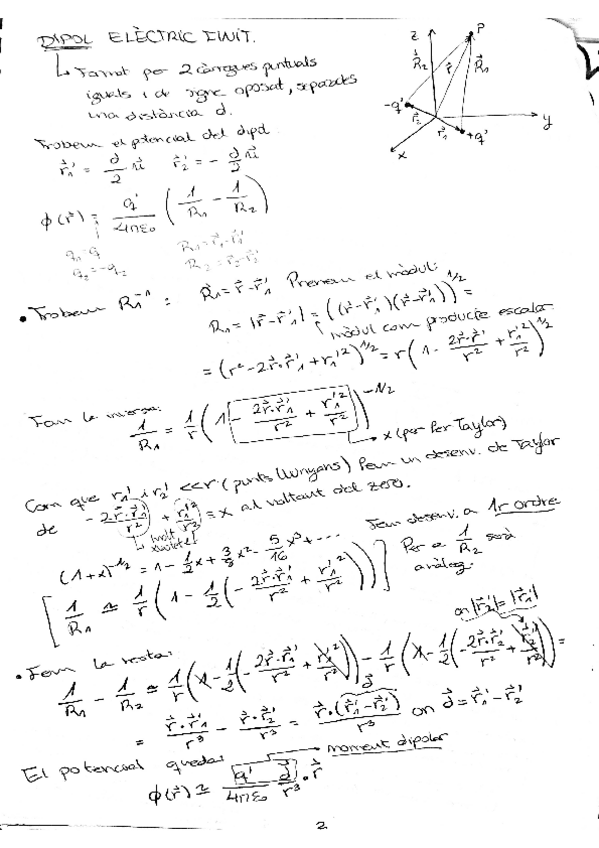 DIPOL ELÈCTRIC FINIT.
↳ Format per 2 càrregues puntuals
iguals i de signe oposat, separades
una distància d.
z
P
R⃗₂
r⃗
R⃗₁
-q'
r⃗₂'
r⃗₁'
+q'
y
x
Trobem el potencial del dipol.
r⃗₁' = d/2 u⃗   r⃗₂' = - d/2 u⃗
ϕ(r⃗) = q'/4πε₀ (1/R₁ - 1/R₂)
q₁=q   R₁=r⃗-r⃗₁'
q₂=-q₂   R₂=r⃗-r⃗₂'
• Trobem R₁⁻¹ : R⃗₁ = r⃗-r⃗₁' Prenem el mòdul:
R₁ = |r⃗-r⃗₁'| = ((r⃗-r⃗₁')(r⃗-r⃗₁'))^1/2 =
mòdul com producte escalar
= (r² - 2r⃗·r⃗₁' + r₁'²)^1/2 = r(1 - 2r⃗·r⃗₁'/r² + r₁'²/r²)^1/2
Fem la inversa:
1/R₁ = 1/r (1 - 2r⃗·r⃗₁'/r² + r₁'²/r²)^-1/2
→ x (per fer Taylor)
Com que r₁' i r₂' <<r (punts llunyans) Fem un desenv. de Taylor
de - 2r⃗·r⃗₁'/r² + r₁'²/r² = x al voltant del zero.
molt
(1+x)^-1/2 = 1 - 1/2 x + 3/8 x² - 5/16 x³ + ...
Fem desenv. a 1r ordre
[1/R₁ ≃ 1/r (1 - 1/2(- 2r⃗·r⃗₁'/r² + r₁'²/r²))]
Per a 1/R₂ serà
anàleg.
• Fem la resta:
on |r⃗₂'| = |r⃗₁'|
1/R₁ - 1/R₂ ≃ 1/r (1 - 1/2(- 2r⃗·r⃗₁'/r² + r₁'²/r²)) - 1/r (1 - 1/2(- 2r⃗·r⃗₂'/r² + r₂'²/r²)) =
= r⃗·r⃗₁'/r³ - r⃗·r⃗₂'/r³ = r⃗·(r⃗₁'-r⃗₂')/r³ on d⃗ = r⃗₁' - r⃗₂'
d⃗
El potencial queda:
moment dipolar
ϕ(r⃗) ≃ q' d⃗/4πε₀ r³ · r⃗
2